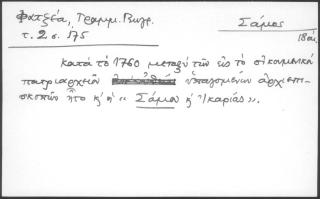 Φατζέα, Γραμμ. Βιογρ.
τ. 2 σ. 175
Σάμος
18αι.
κατά τό 1760 μεταξύ τῶν εἰς τό οἰκουμενικό
πατριαρχεῖον ὑπαγομένων ἀρχιεπι-
σκοπῶν ἦτο κ' ἡ "Σάμου κ' Ἰκαρίας".